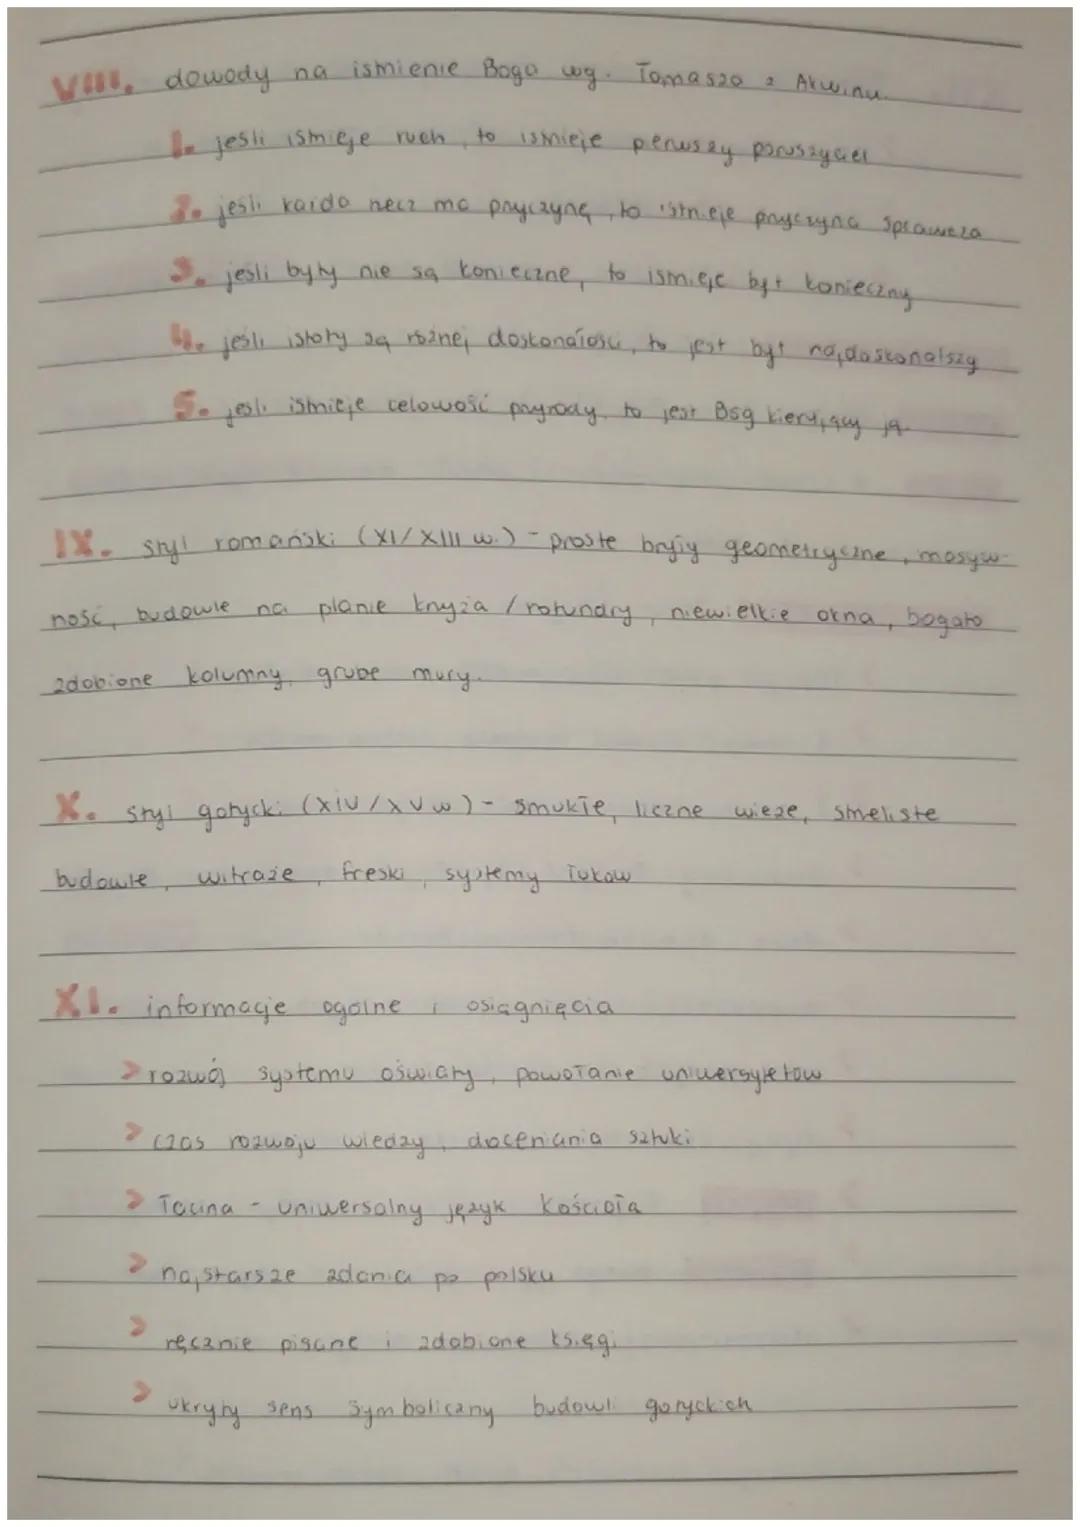 VIII. dowody na istnienie Boga wg. Tomasza z Akwinu.
1. jeśli istnieje ruch, to istnieje pierwszy poruszyciel
2. jeśli każda rzecz ma przyczynę, to istnieje przyczyna sprawcza
3. jeśli byty nie są konieczne, to istnieje byt konieczny
4. jeśli istoty są różnej doskonałości, to jest byt najdoskonalszy
5. jeśli istnieje celowość przyrody, to jest Bóg kierujący ją.
IX. styl romański (XI/XIII w.) - proste bryły geometryczne, masyw-
ność, budowle na planie krzyża / rotundry, niewielkie okna, bogato
zdobione kolumny, grube mury.
X. styl gotycki (XIV/XV w) - smukłe, liczne wieże, strzeliste
budowle, witraże, freski, systemy łuków
XI. informacje ogólne i osiągnięcia
> rozwój systemu oświaty, powołanie uniwersytetów
> czas rozwoju wiedzy, doceniania sztuki
> łacina - uniwersalny język Kościoła
> najstarsze zdania po polsku
> ręcznie pisane i zdobione księgi
> ukryty sens symboliczny budowli gotyckich